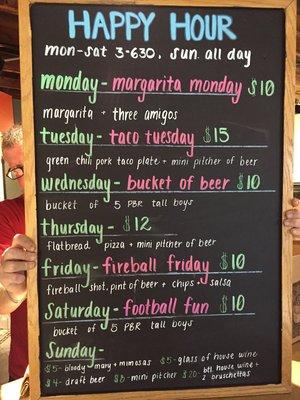 HAPPY HOUR
mon-sat 3-630, sun. all day
monday - margarita monday $10
margarita + three amigos
tuesday - taco tuesday $15
green chili pork taco plate + mini pitcher of beer
wednesday - bucket of beer $10
bucket of 5 PBR tall boys
thursday - $12
flatbread pizza + mini pitcher of beer
friday - fireball friday $10
fireball shot, pint of beer + chips + salsa
Saturday - football fun $10
bucket of 5 PBR tall boys
Sunday -
$5- bloody mary + mimosas $5- glass of house wine
$4- draft beer $8- mini pitcher $20- btl. house wine + 2 bruschettas